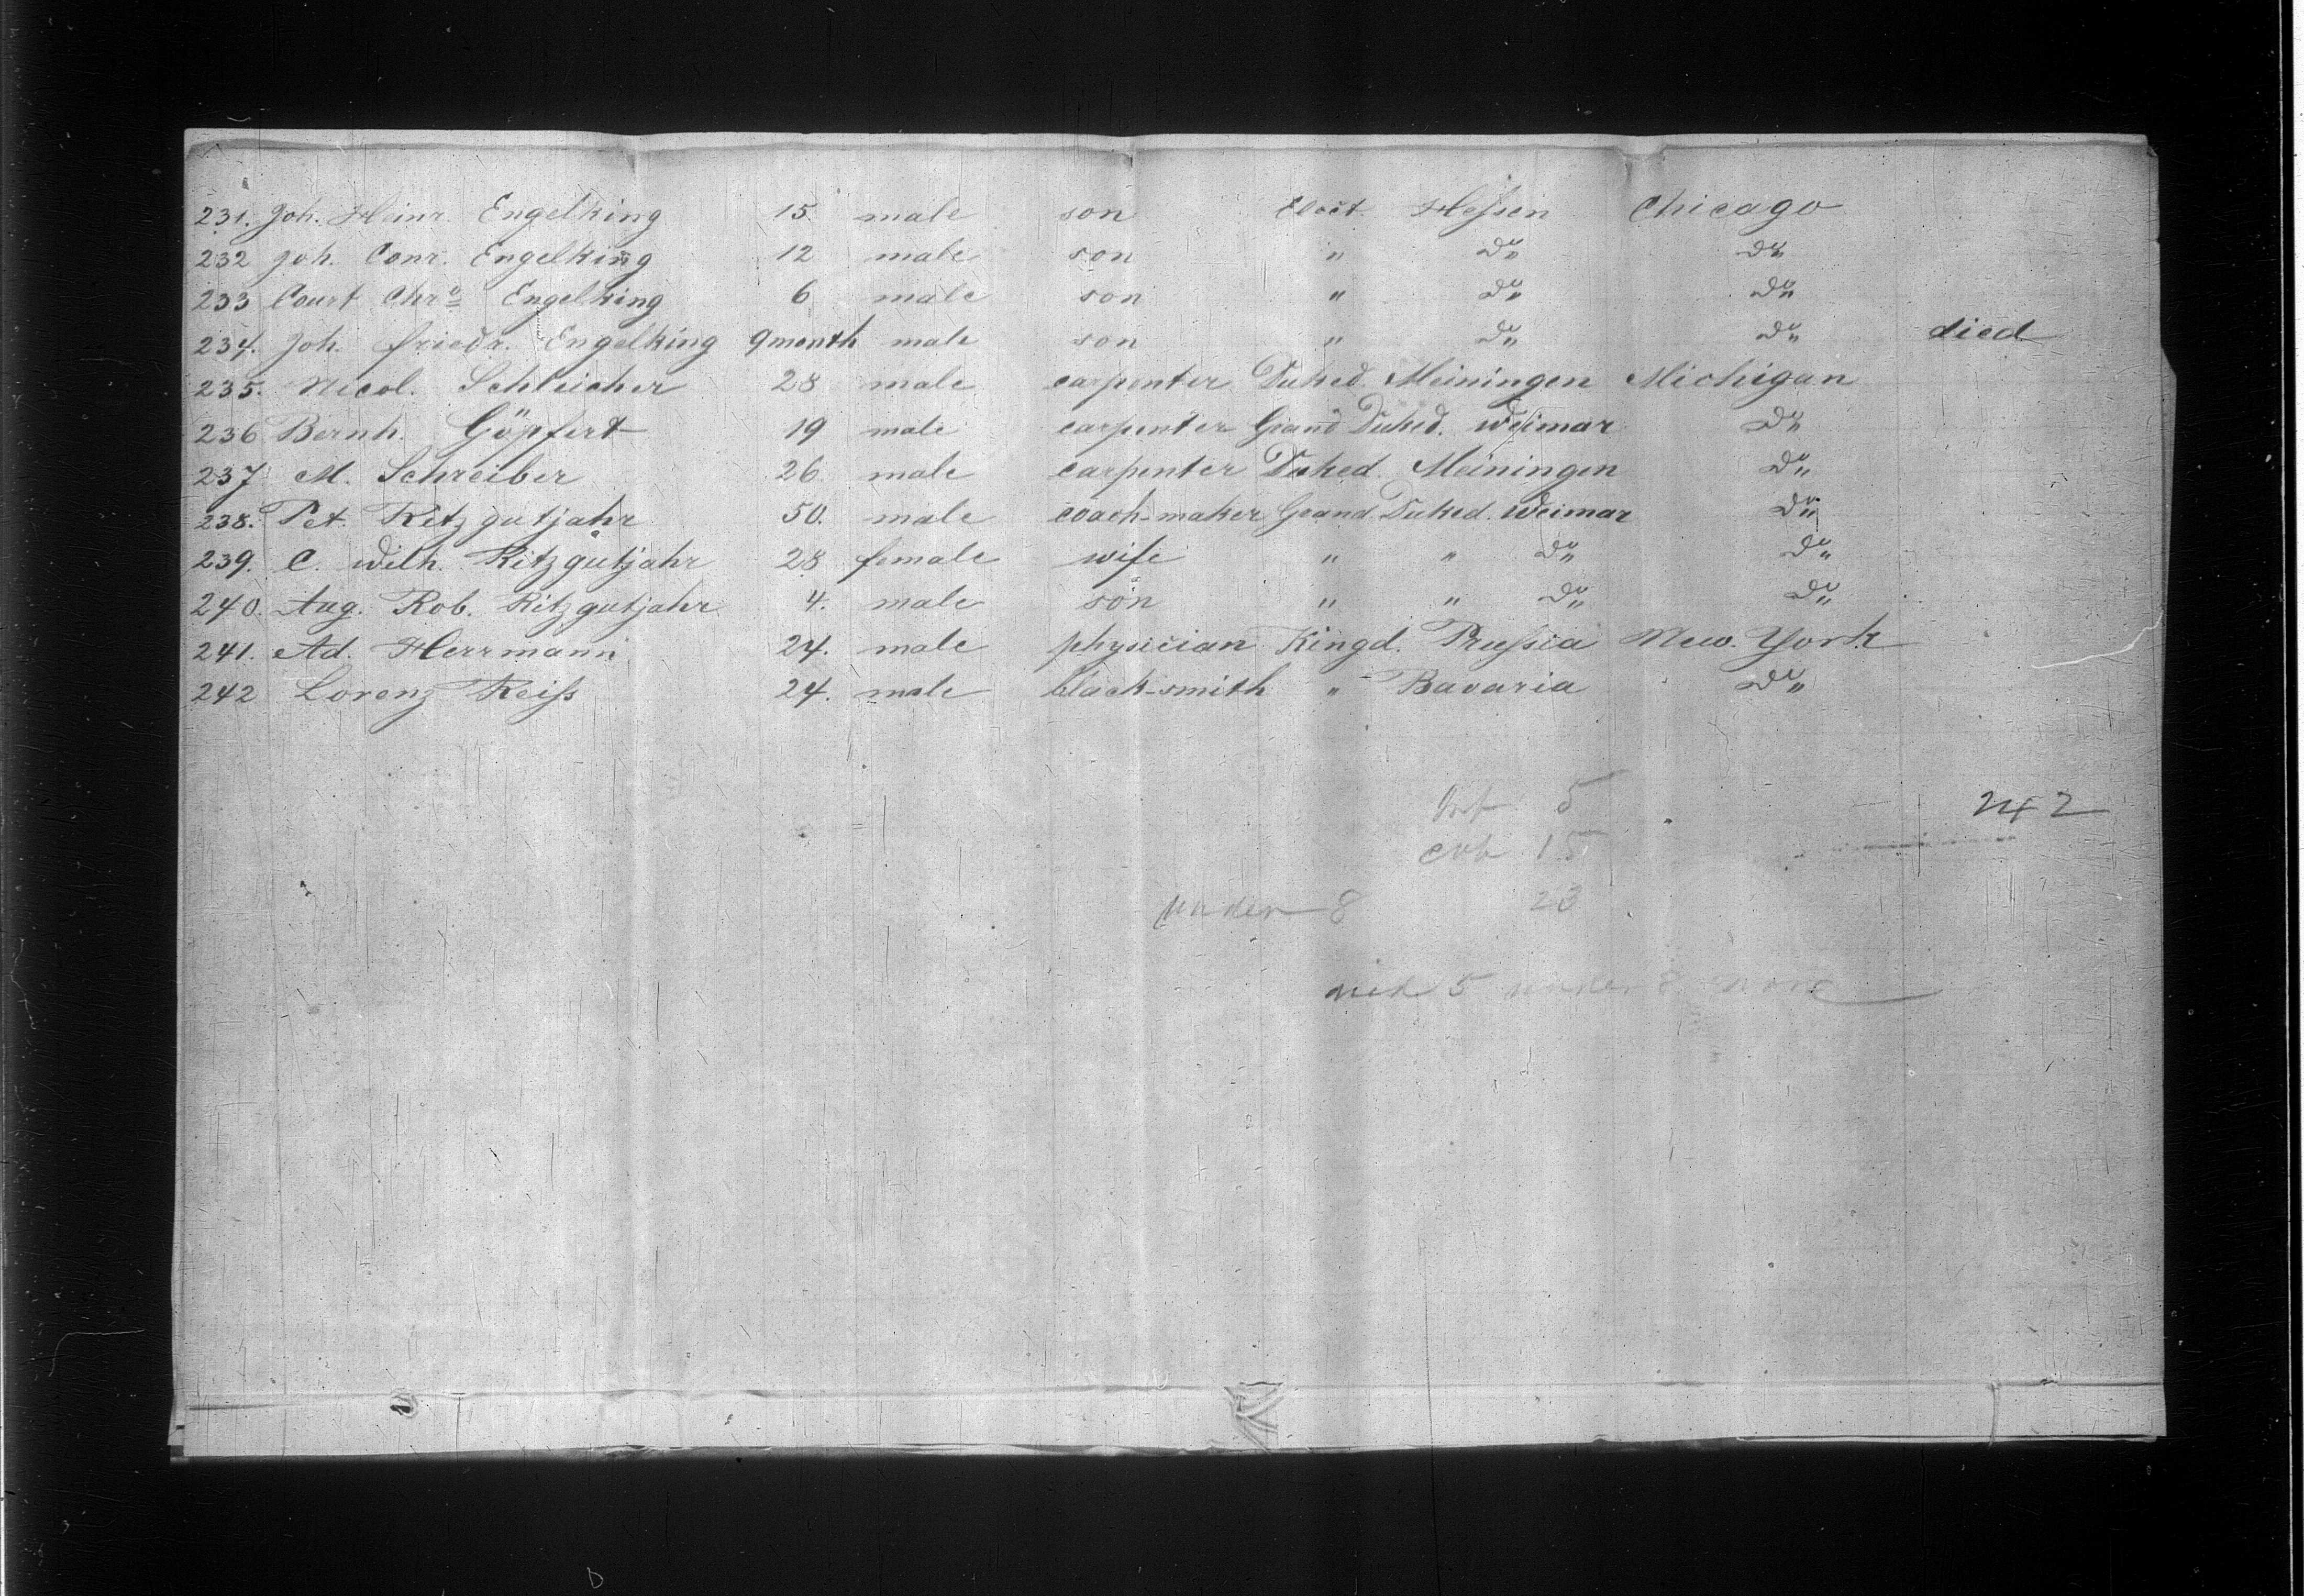 231. Joh. Heinr. Engelking 15 male son Elect. Hessen Chicago
232 Joh. Conr. Engelking 12 male son " Do" Do"
233 Court Chro Engelking 6 male son " Do" Do"
234. Joh. Friedr. Engelking 9 month male son " Do" Do" died
235. Nicol. Schleicher 28 male carpenter Duked. Meiningen Michigan
236 Bernh. Göpfert 19 male carpenter Grand Duked. Weimar Do"
237 M. Schreiber 26 male carpenter Duked. Meiningen Do"
238. Pet. Ritzgutjahr 50. male coach-maker Grand Duked. Weimar Do"
239. C. Wilh. Ritzgutjahr 28 female wife " " Do" Do"
240. Aug. Rob. Ritzgutjahr 4. male son " " Do" Do"
241. Ad. Herrmann 24. male physician Kingd. Prussia New York
242 Lorenz Reiss 24. male black-smith " Bavaria Do"
5 242
15
under 8 23
5 under 8